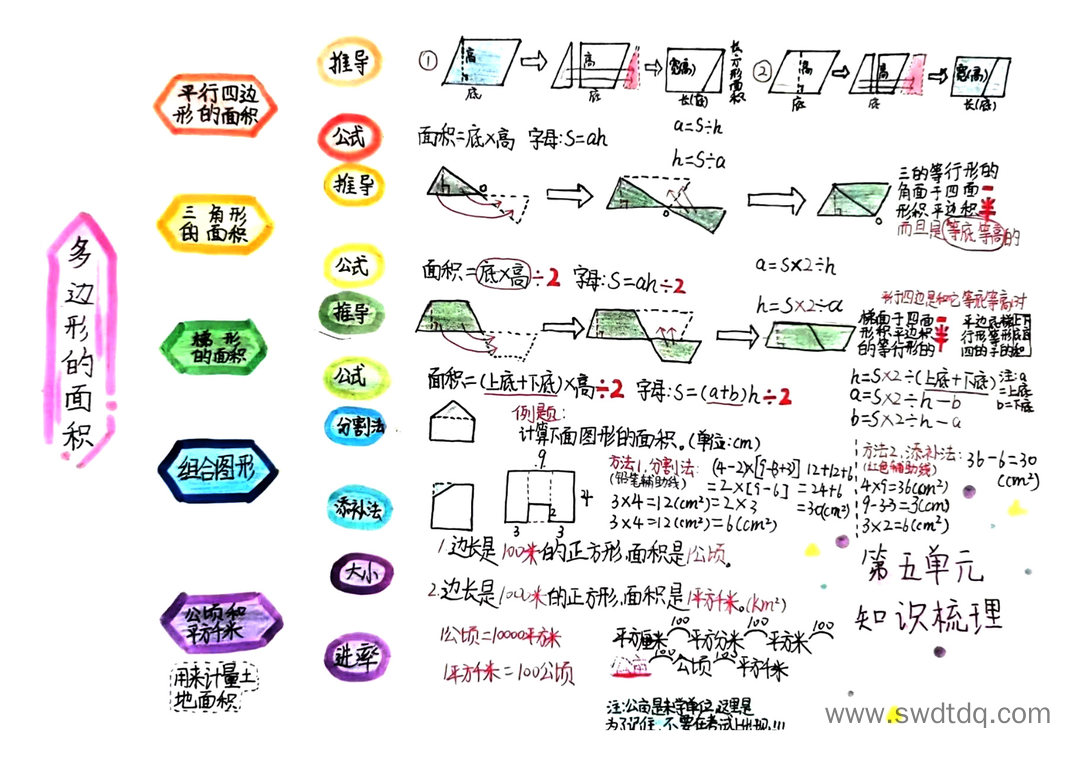 多边形的面积
平行四边
形的面积
推导
① 高 底 高 底 宽(高) 长(底) 长方形面积
② 高 底 高 底 宽(高) 长(底)
公式
面积=底×高 字母:S=ah
a=S÷h
h=S÷a
三角形
的面积
推导
三角形的面积等于平行四边形面积的一半
而且是等底等高的
公式
面积=底×高÷2 字母:S=ah÷2
a=S×2÷h
h=S×2÷a
梯形
的面积
推导
梯形的面积等于平行四边形面积的一半
公式
面积=(上底+下底)×高÷2 字母:S=(a+b)h÷2
h=S×2÷(上底+下底)
a=S×2÷h-b
b=S×2÷h-a
注:a
=上底
b=下底
组合图形
分割法
添补法
例题:
计算下面图形的面积。(单位:cm)
9
4
2
3 3
方法1,分割法:
(铅笔辅助线)
3×4=12(cm²)
3×4=12(cm²)
(4-2)×[9-(3+3)]
=2×[9-6]
=2×3
=6(cm²)
12+12+6
=24+6
=30(cm²)
方法2,添补法:
(红色辅助线)
4×9=36(cm²)
9-3-3=3(cm)
3×2=6(cm²)
36-6=30
(cm²)
公顷和
平方千米
用来计量土
地面积
大小
1.边长是100米的正方形,面积是1公顷。
2.边长是1000米的正方形,面积是1平方千米。(km²)
进率
1公顷=10000平方米
1平方千米=100公顷
平方厘米 100 平方分米 100 平方米 100
100 公顷 100 平方千米
第五单元
知识梳理
www.swdtdq.com